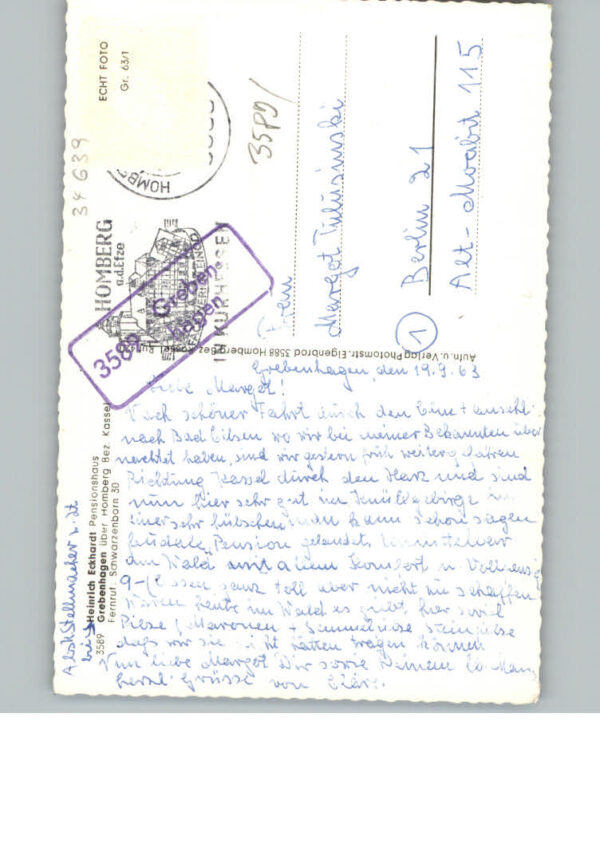 ECHT FOTO
Gr. 63/1
34 639
HOMBERG
a.d. Efze
IN KURHESSEN
3589 Greben-
hagen
Margot
① Berlin 21
Alt-Moabit 115
Aufn. u. Verlag Photomstr. Eigenbrod 3588 Homberg Bez. Kassel
Heinrich Eckhardt Pensionshaus
3589 Grebenhagen über Homberg Bez. Kassel
Fernruf: Schwarzenborn 30
Abs. Stellmacher z. Zt.
bei
Grebenhagen, den 19.9.63
Liebe Margot!
Nach schöner Fahrt durch den
nach Bad Eilsen wo wir bei meiner Bekannten über
nachtet haben, sind wir gestern früh weitergefahren
Richtung Kassel durch den Harz und sind
nun hier sehr gut im Knüllgebirge in
einer sehr hübschen man kann schon sagen
Pension gelandet,
am Wald mit allem Komfort u. Vollpension
9,- Essen ganz toll aber nicht zu schaffen
Waren heute im Wald es gibt hier soviel
Pilze Maronen + Steinpilze
daß wir sie nicht hätten tragen können
Nun liebe Margot Dir sowie Deinem lb. Mann
herzl. Grüsse von